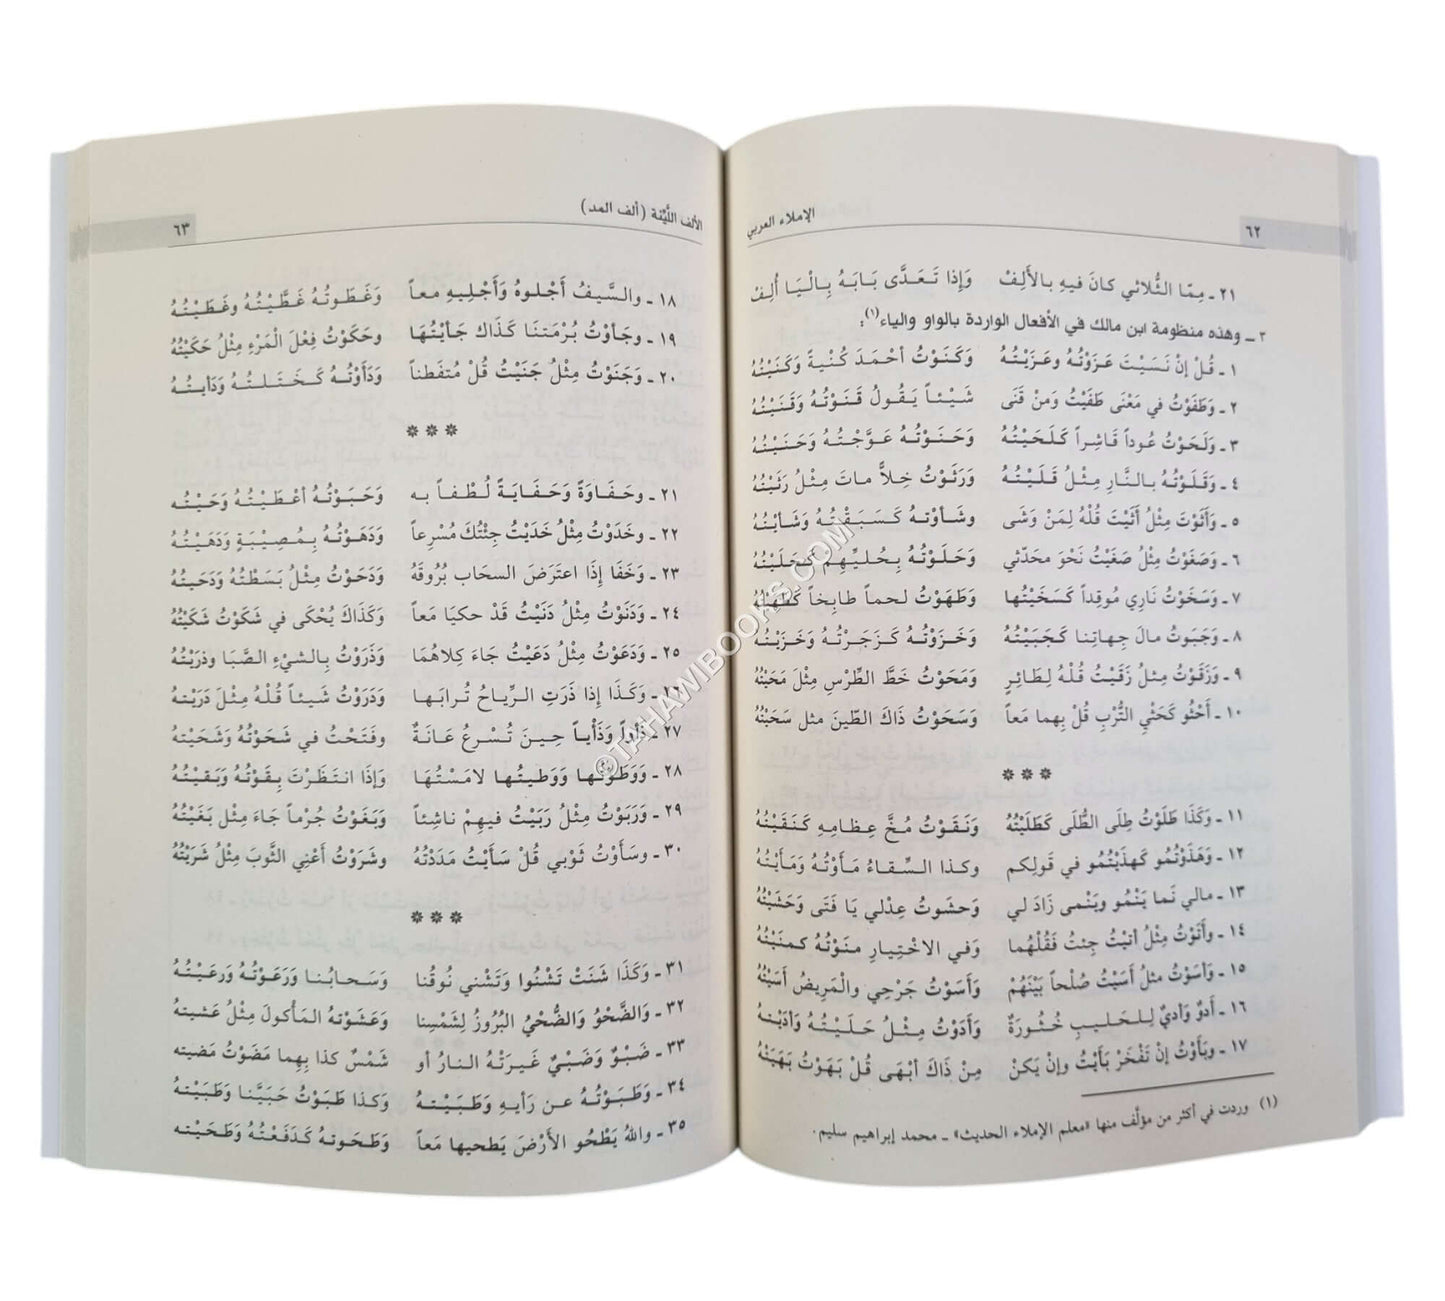 ٦٢ الإملاء العربي
٢١ ـ مِمّا الثُّلاثي كانَ فيهِ بالأَلِفْ وَإذا تَعَدَّى بَابَهُ بِالْيَا أُلِفْ
٣ ـ وهذه منظومة ابن مالك في الأفعال الواردة بالواو والياء(١):
١ ـ قُلْ إنْ نَسَبْتَ عَزَوْتُهُ وعَزَيْتُهُ وَكَنَوْتُ أحْمَدَ كُنْيةً وَكَنَيْتُهُ
٢ ـ وَطَغَوْتُ في مَعْنَى طَغَيْتُ وَمَنْ قَنَى شَيْئاً يَقُولُ قَنَوْتُهُ وَقَنَيْتُهُ
٣ ـ وَلَحَوْتُ عُوداً قَاشِراً كَلَحَيْتُهُ وَحَنَوْتُهُ عَوَّجْتُهُ وَحَنَيْتُهُ
٤ ـ وَقَلَوْتُهُ بالنَّارِ مِثْلُ قَلَيْتُهُ وَرَثَوْتُ خِلاًّ ماتَ مِثْلُ رَثَيْتُهُ
٥ ـ وَأَثَوْتَ مِثْلُ أَثَيْتَ قُلْهُ لِمَنْ وَشَى وشَأوْتهُ كَسَبَقْتُهُ وَشَأيْتُهُ
٦ ـ وَصَغَوْتُ مِثْلُ صَغَيْتُ نَحْوَ محَدّثي وَحَلَوْتُهُ بِحُليِّهِمْ كحَلَيْتُهُ
٧ ـ وَسَخَوْتُ نَارِي مُوقِداً كَسَخَيْتُها وَطَهَوْتُ لحماً طابِخاً كَطَهَيْتُهُ
٨ ـ وَجَبَوتُ مالَ جِهاتِنا كَجَبَيْتُهُ وَخَزَوْتُهُ كَزَجَرْتُهُ وَخَزَيْتُهُ
٩ ـ وَزَقَوْتُ مِثلُ زَقَيْتُ قُلْهُ لِطَائِرٍ وَمَحَوْتُ خَطَّ الطِّرْسِ مِثْلَ مَحَيْتُهُ
١٠ ـ أَحْثُو كَحَثْيِ التُّرْبِ قُلْ بِهما مَعاً وَسَحَوْتُ ذَاكَ الطّينَ مثل سَحَيْتُهُ
***
١١ ـ وَكَذَا طَلَوْتُ طِلَى الطُّلَى كَطَلَيْتُهُ وَنَقَوْتُ مُخَّ عِظامِهِ كَنَقَيْتُهُ
١٢ ـ وَهَذَوْتُمو كَهذَيْتُمُو في قَولِكم وكذا السِّقاءُ مَأَوْتُهُ وَمَأَيْتُهُ
١٣ ـ مالي نَما يَنْمُو وَيَنْمى زَادَ لي وَحشَوتُ عِدْلي يَا فَتَى وَحَشَيْتُهُ
١٤ ـ وأَتَوْتُ مِثْلُ أتيْتُ جِئتُ فَقُلْهُما وَفي الاخْتِيارِ منَوْتُهُ كمنَيْتُهُ
١٥ ـ وأسَوْتُ مثلُ أسَيْتُ صُلْحاً بَيْنَهُمْ وَأسَوْتُ جَرْحِي والْمَرِيضُ أسَيْتُهُ
١٦ ـ أَدوٌ وَأديٌ لِلحَليبِ خُثُورَةٌ وَأَدَوْتُ مِثْلُ حَلَيْتُهُ وَأدَيْتهُ
١٧ ـ وبَأَوْتُ إنْ تَفْخَرْ بَأَيْتُ وإنْ يَكنْ مِنْ ذَاكَ أبْهَى قُلْ بَهَوْتُ بَهَيْتُهُ
(١) وردت في أكثر من مؤلّف منها «معلم الإملاء الحديث» ـ محمد إبراهيم سليم.
الألف اللَّيِّنة (ألف المد) ٦٣
١٨ ـ والسَّيفُ أَجْلوهُ وَأَجْلِيهِ معاً وَغَطَوتُهُ غَطَّيْتُهُ وغَطَيْتُهُ
١٩ ـ وجَأوْتُ بُرْمَتنَا كَذَاكَ جَأيْتُها وحَكَوْتُ فِعْلَ الْمَرْءِ مِثْلُ حَكَيْتُهُ
٢٠ ـ وَجَنَوْتُ مِثْلُ جَنَيْتُ قُلْ مُتفَطناً وَدَأوْتُهُ كَخَتَلتُهُ وَدَأيتُهُ
***
٢١ ـ وحَفَاوَةً وَحَفَايَةً لُطْفاً به وَحَبَوْتُهُ أعْطَيْتُهُ وَحَبَيْتُهُ
٢٢ ـ وخَدَوْتُ مِثْلُ خَدَيْتُ جِئْتُكَ مُسْرِعاً وَدَهَوْتُهُ بِمُصِيْبَةٍ وَدَهَيْتُهُ
٢٣ ـ وَخَفَا إذَا اعتَرَضَ السحَاب بُرُوقَهُ وَدَحَوْتُ مِثْلُ بَسَطْتُهُ وَدَحَيْتُهُ
٢٤ ـ وَدَنَوْتُ مِثْلُ دَنَيْتُ قَدْ حكيَا مَعاً وَكَذَاكَ يُحْكَى في شَكَوْتُ شَكَيْتُهُ
٢٥ ـ وَدَعَوْتُ مِثْلُ دَعَيْتُ جَاءَ كِلاهُمَا وَذَرَوْتُ بِالشيْءِ الصَّبَا وذرَيْتُهُ
٢٦ ـ وَكَذَا إذَا ذَرَتِ الرِّياحُ تُرابَها وَدَرَوْتُ شَيئاً قُلْهُ مِثْلَ دَرَيْتهُ
٢٧ ـ ذَأْواً وَذَأْياً حِينَ تُسْرعُ عَانَةٌ وفتَحْتُ في شَحَوْتُهُ وَشَحَيْتهُ
٢٨ ـ وَوَطَوْتُها وَوَطيتُها لامَسْتُهَا وَإذَا انتَظَرْتَ بقَوْتُهُ وَبَقيْتُهُ
٢٩ ـ وَرَبَوْتُ مِثْلُ رَبَيْتُ فيهِمْ ناشِئاً وَبَغَوْتُ جُرْماً جَاءَ مِثْلُ بَغَيْتُهُ
٣٠ ـ وسَأَوْتُ ثَوْبي قُلْ سَأَيْتُ مَدَدْتُهُ وشَرَوْتُ أعْنِي الثَّوبَ مِثْلُ شَرَيْتُهُ
***
٣١ ـ وَكَذَا سَنَتْ تَسْنُوا وَتَسْني نُوقُنا وَسَحابُنا وَرَعَوْتُهُ وَرَعَيْتُهُ
٣٢ ـ وَالضَّحْوُ وَالضُّحْيُ البُرُوزُ لِشَمْسِنا وَعَشَوْتهُ المَأْكُولَ مِثْلُ عَشيتهُ
٣٣ ـ ضَبْوٌ وَضَبْيٌ غَيرَتْهُ النارُ أو شَمْسٌ كذا بِهِما مَضَوْتُ مَضَيته
٣٤ ـ وَطَبَوْتُهُ عن رَأيهِ وَطَبَيْتهُ وَكذا طَبَوْتُ حَبَيَّنا وَطَبَيْتهُ
٣٥ ـ واللهُ يَطْحُو الأَرْضَ يَطحيها مَعاً وَطَحَوتهُ كَدَفَعْتُهُ وَطَحَيْته
©TAHAWIBOOKS.COM